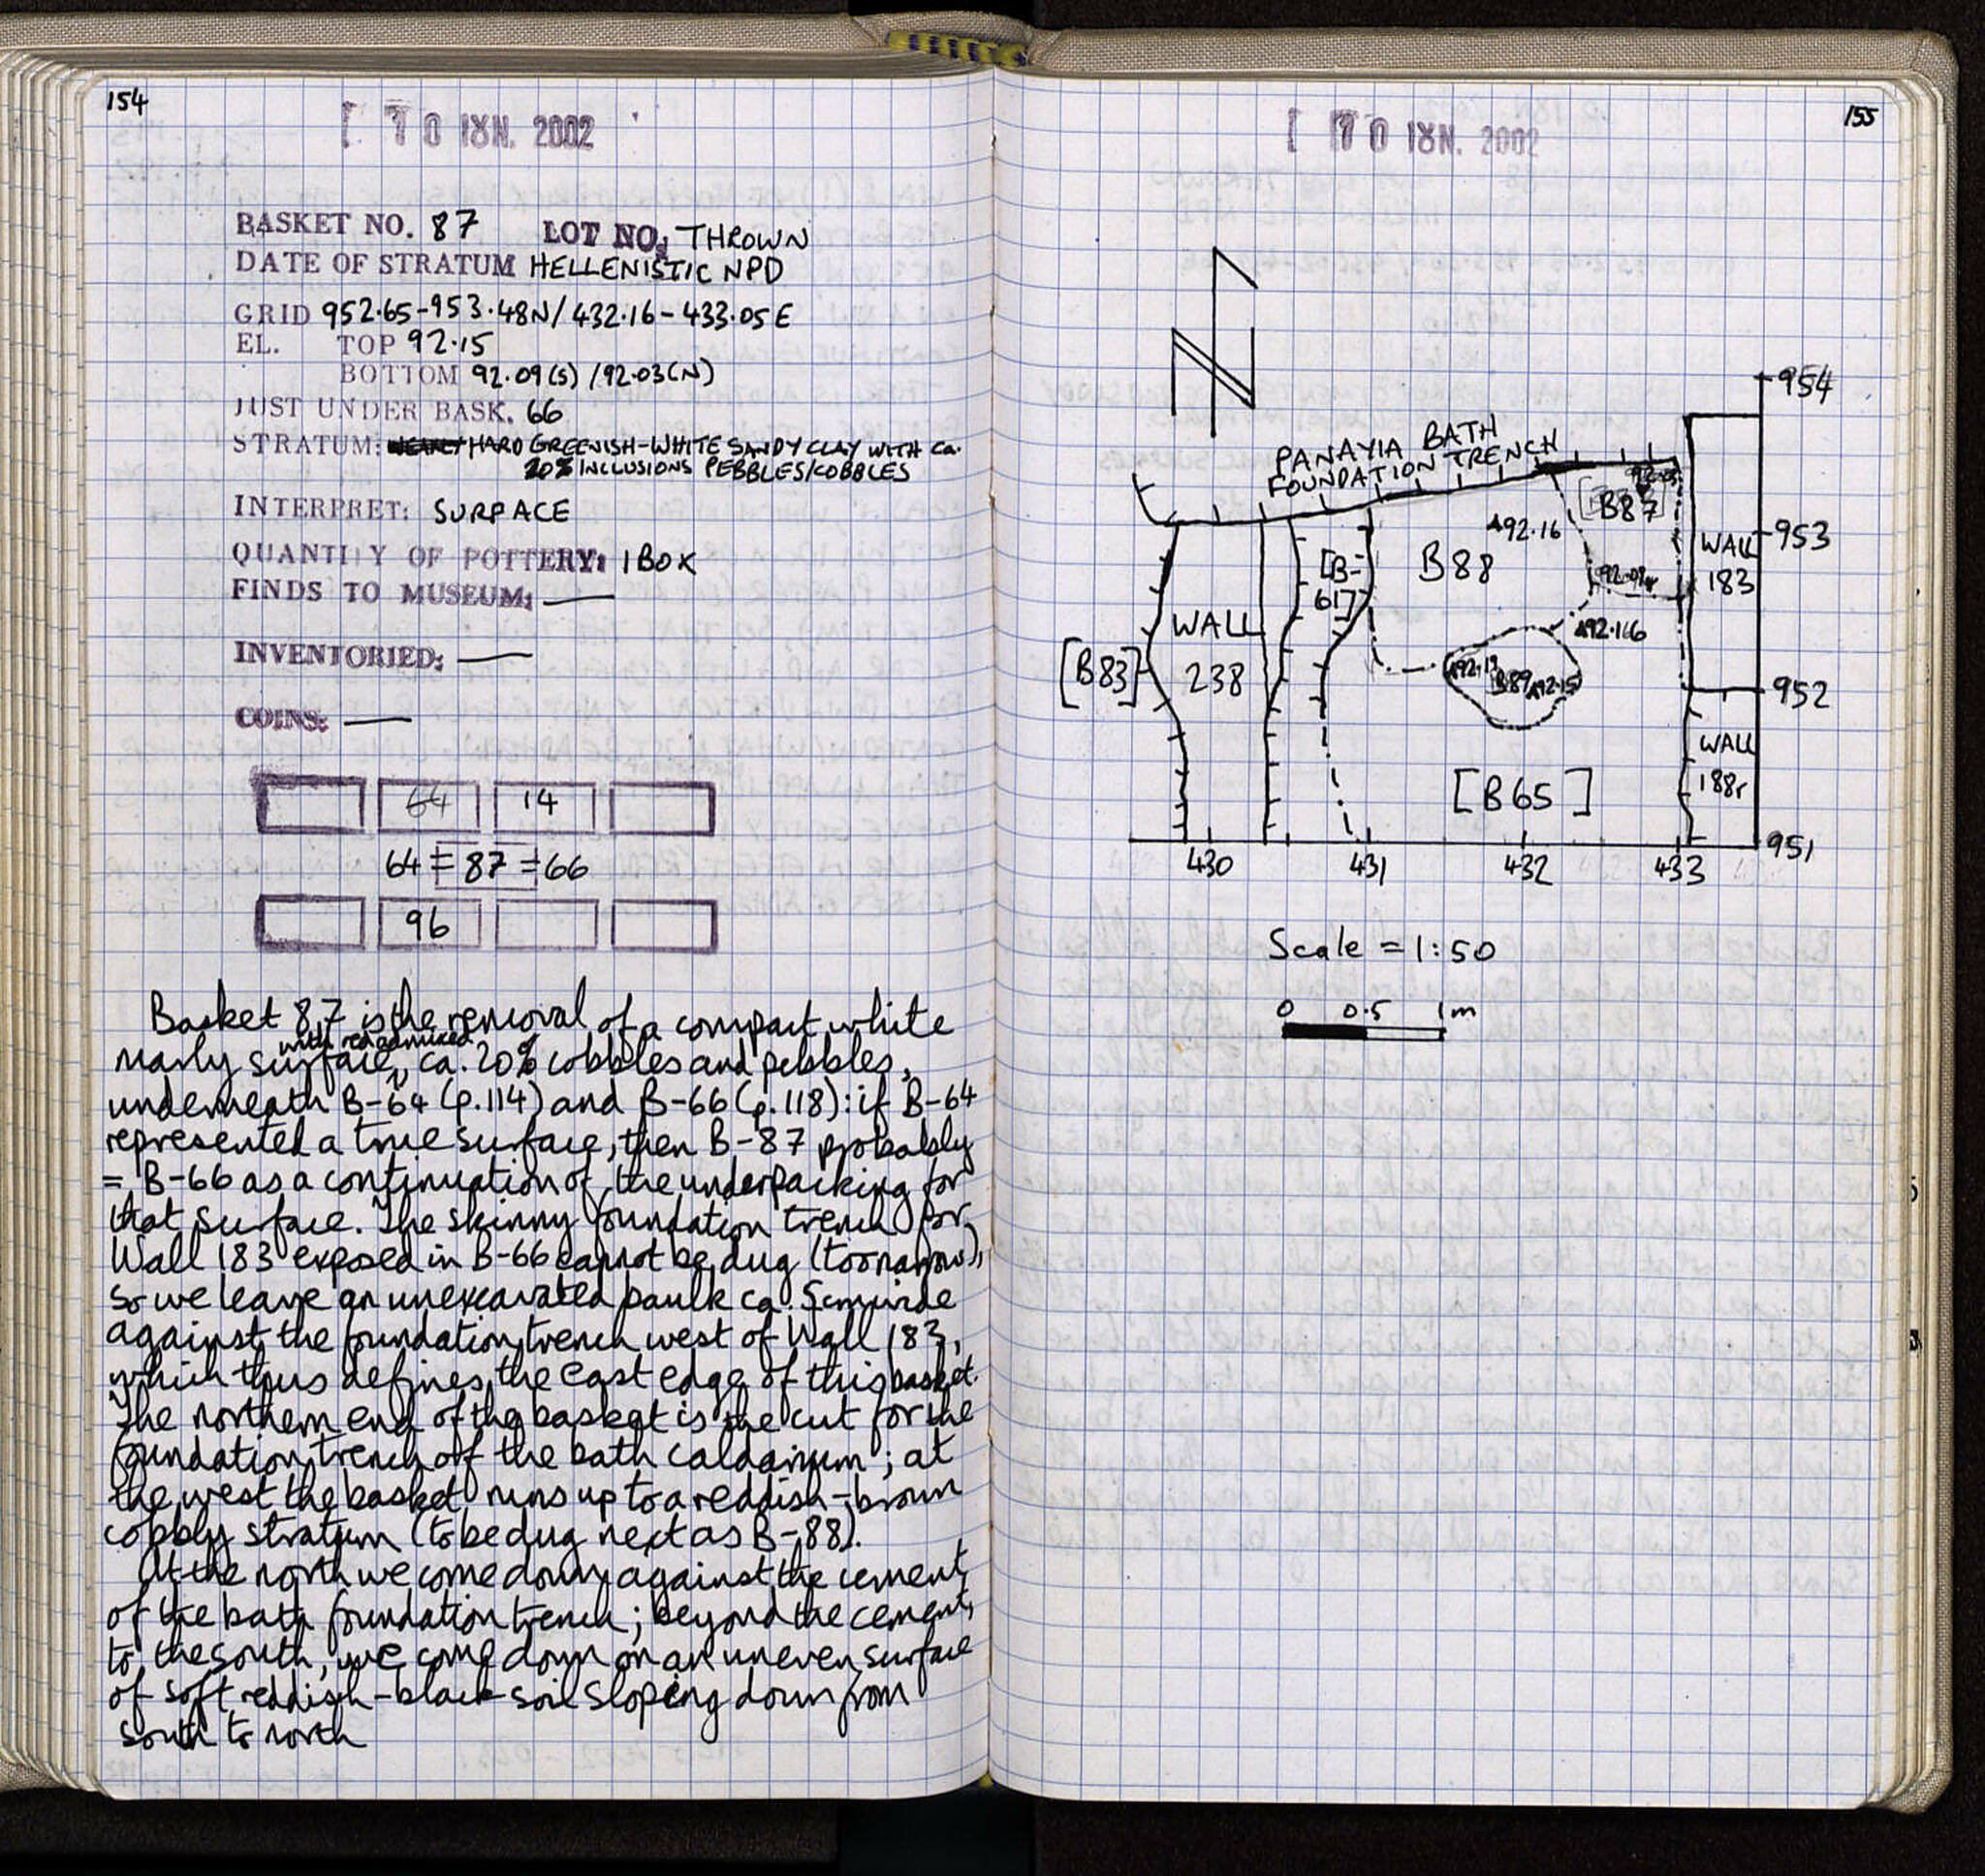 154
10 ΙΟΥΝ. 2002
BASKET NO. 87 LOT NO. THROWN
DATE OF STRATUM HELLENISTIC NPD
GRID 952.65-953.48N/432.16-433.05E
EL. TOP 92.15
BOTTOM 92.09(S)/92.03(N)
JUST UNDER BASK. 66
STRATUM: HARD GREENISH-WHITE SANDY CLAY WITH ca.
20% INCLUSIONS PEBBLES/COBBLES
INTERPRET: SURFACE
QUANTITY OF POTTERY: 1 BOX
FINDS TO MUSEUM: —
INVENTORIED: —
COINS: —
64 14
64 = 87 = 66
96
Basket 87 is the removal of a compact white
with red admixed
marly surface, ca. 20% cobbles and pebbles,
underneath B-64 (p.114) and B-66 (p.118): if B-64
represented a true surface, then B-87 probably
= B-66 as a continuation of the underpacking for
that surface. The skinny foundation trench for
Wall 183 exposed in B-66 cannot be dug (too narrow),
so we leave an unexcavated baulk ca. 5cm wide
against the foundation trench west of Wall 183,
which thus defines the east edge of this basket.
The northern end of the basket is the cut for the
foundation trench off the bath caldarium; at
the west the basket runs up to a reddish-brown
cobbly stratum (to be dug next as B-88).
At the north we come down against the cement
of the bath foundation trench; beyond the cement,
to the south, we come down on an uneven surface
of soft reddish-black soil sloping down from
south to north
155
10 ΙΟΥΝ. 2002
N
954
PANAYIA BATH
FOUNDATION TRENCH
[B87]
92.16
B88
WALL
183
953
[B-
61]
WALL
238
92.166
[B83]
B89
92.15
952
WALL
188r
[B65]
951
430 431 432 433
Scale = 1:50
0 0.5 1m